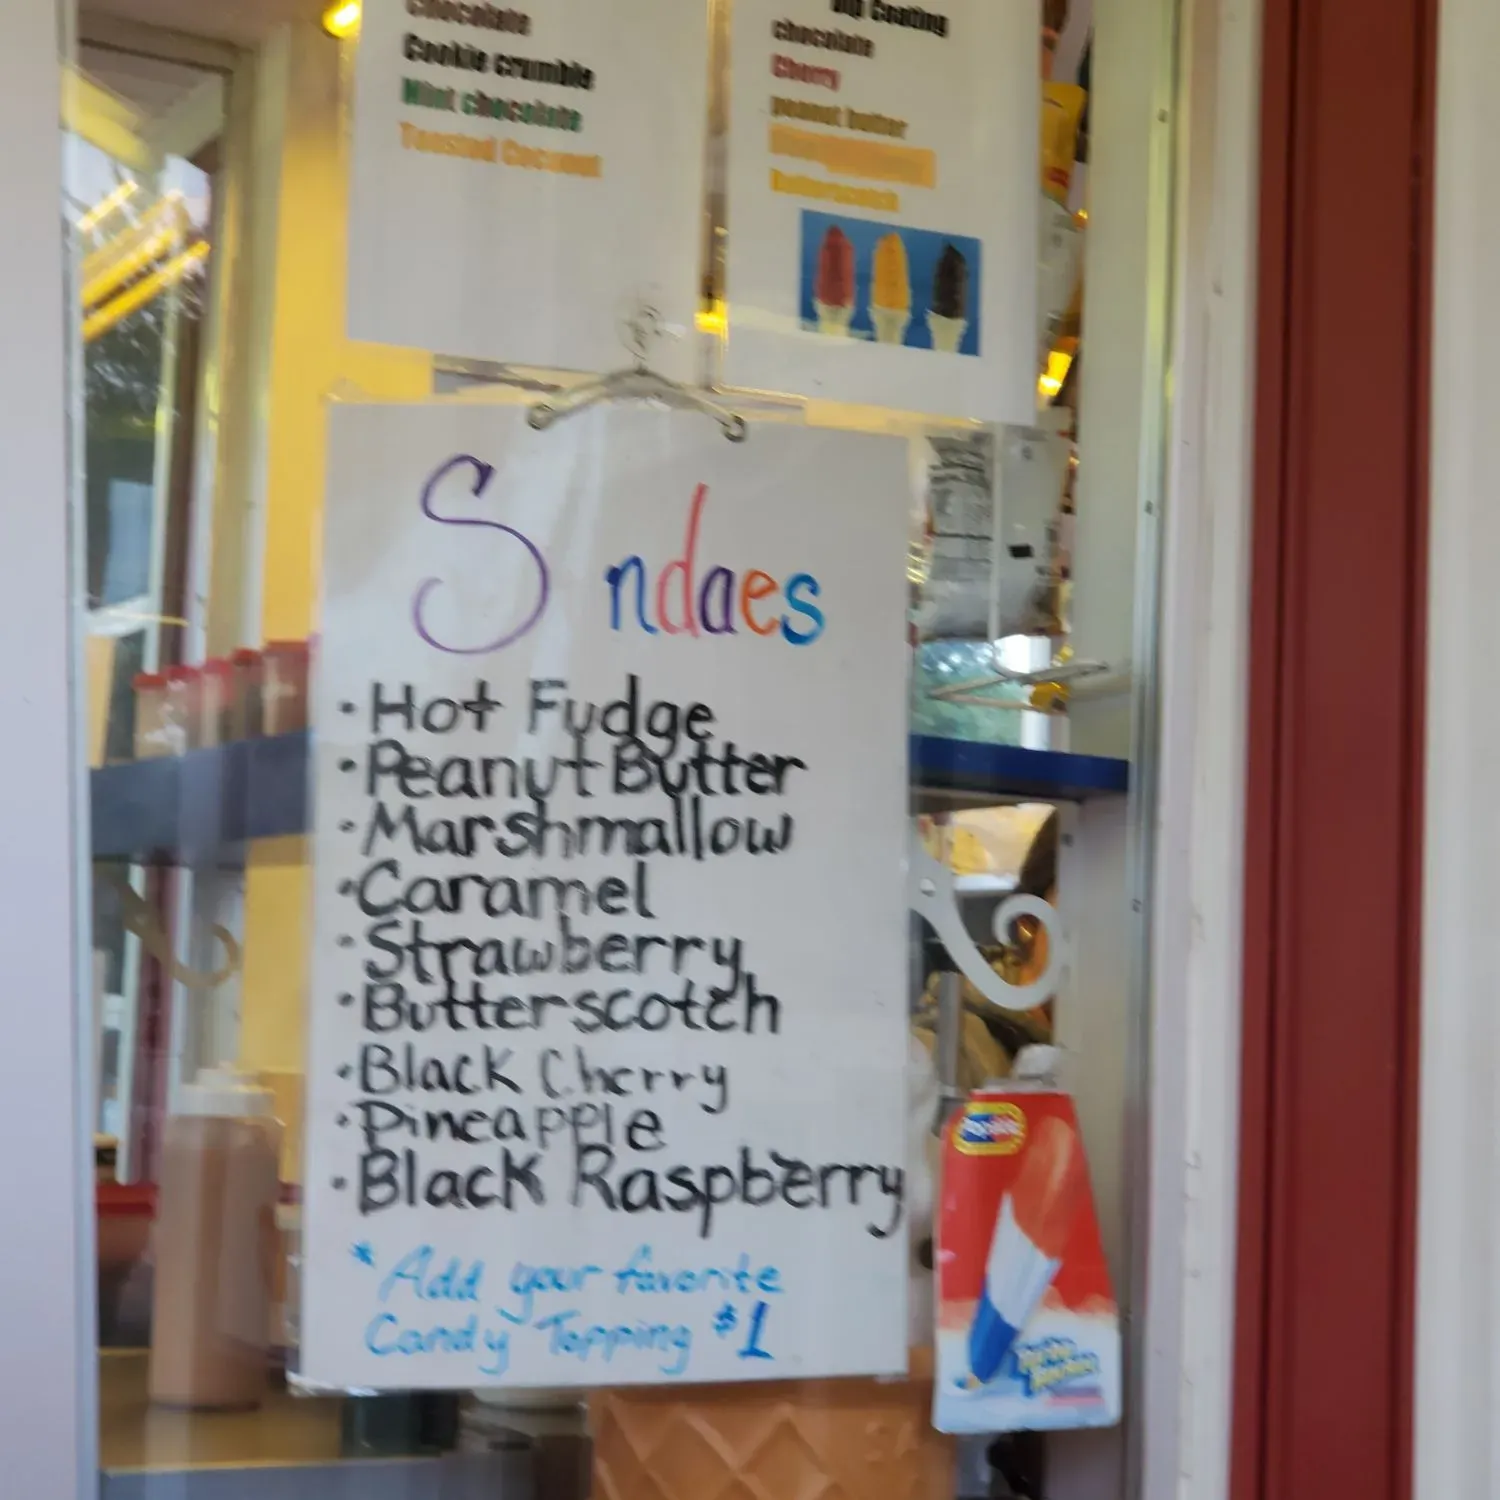 Chocolate
Cookie crumble
Mint chocolate
Toasted Coconut
Dip Coating
chocolate
Cherry
peanut butter
Butterscotch
S ndaes
· Hot Fudge
· Peanut Butter
· Marshmallow
· Caramel
· Strawberry
· Butterscotch
· Black Cherry
· Pineapple
· Black Raspberry
* Add your favorite
Candy Topping $1